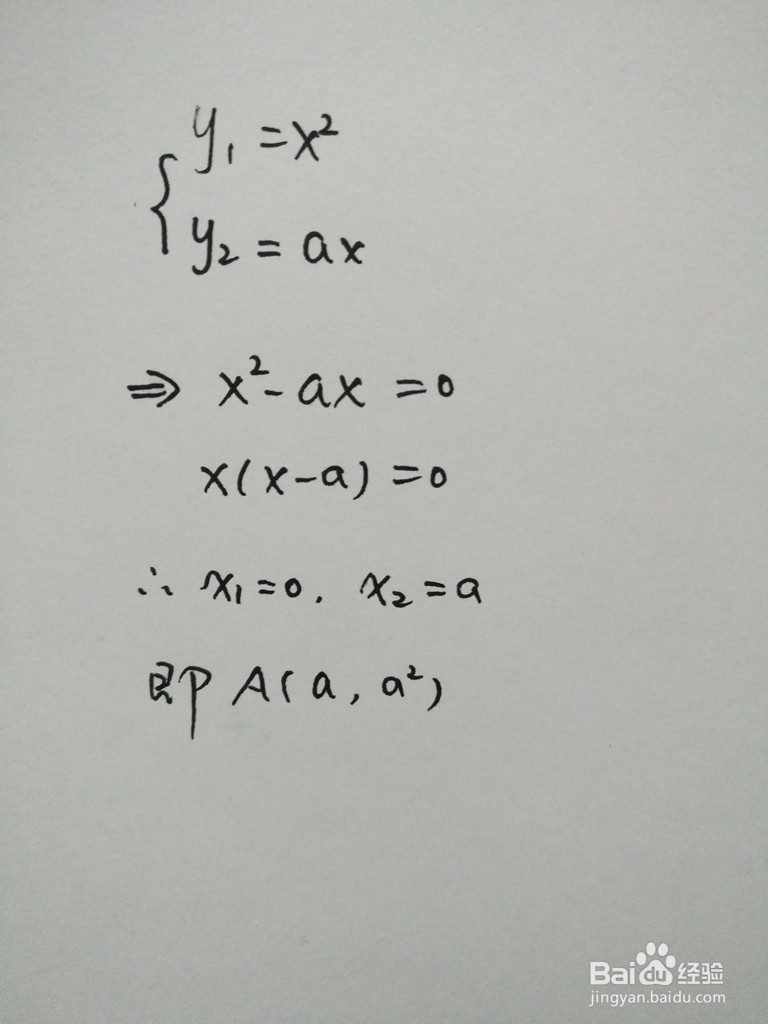 y₁ = x²
y₂ = ax
⇒ x² - ax = 0
x(x-a) = 0
∴ x₁ = 0. x₂ = a
即 A(a, a²)
Baidu经验
jingyan.baidu.com